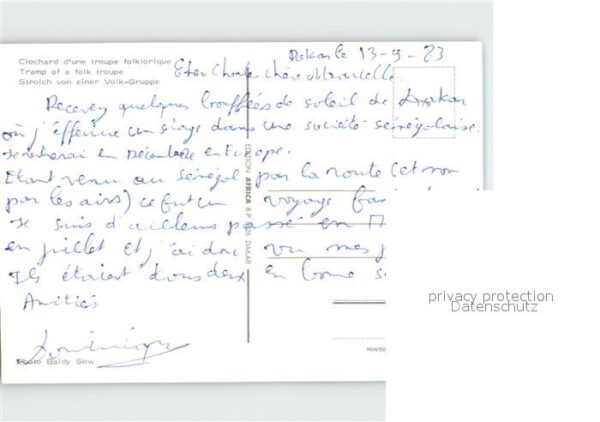 Clochard d'une troupe folklorique
Tramp of a folk troupe
Strolch von einer Volk-Gruppe
Dakar le 13-9-83
Cher Charles chère Marcelle.
Recevez quelques bouffées de soleil de Dakar
où j'effectue un stage dans une société sénégalaise.
Je rentrerai en Décembre en Europe.
Etant venu au Sénégal par la route (et non
par les airs) ce fut un voyage
Je suis d'ailleurs passé en
en juillet et j'ai donc vu mes
Ils étaient tous deux en bonne
Amitiés
Dominique
Photo Baïdy Sow
EDITION AFRICA B.P. DAKAR
PRINTED
privacy protection
Datenschutz